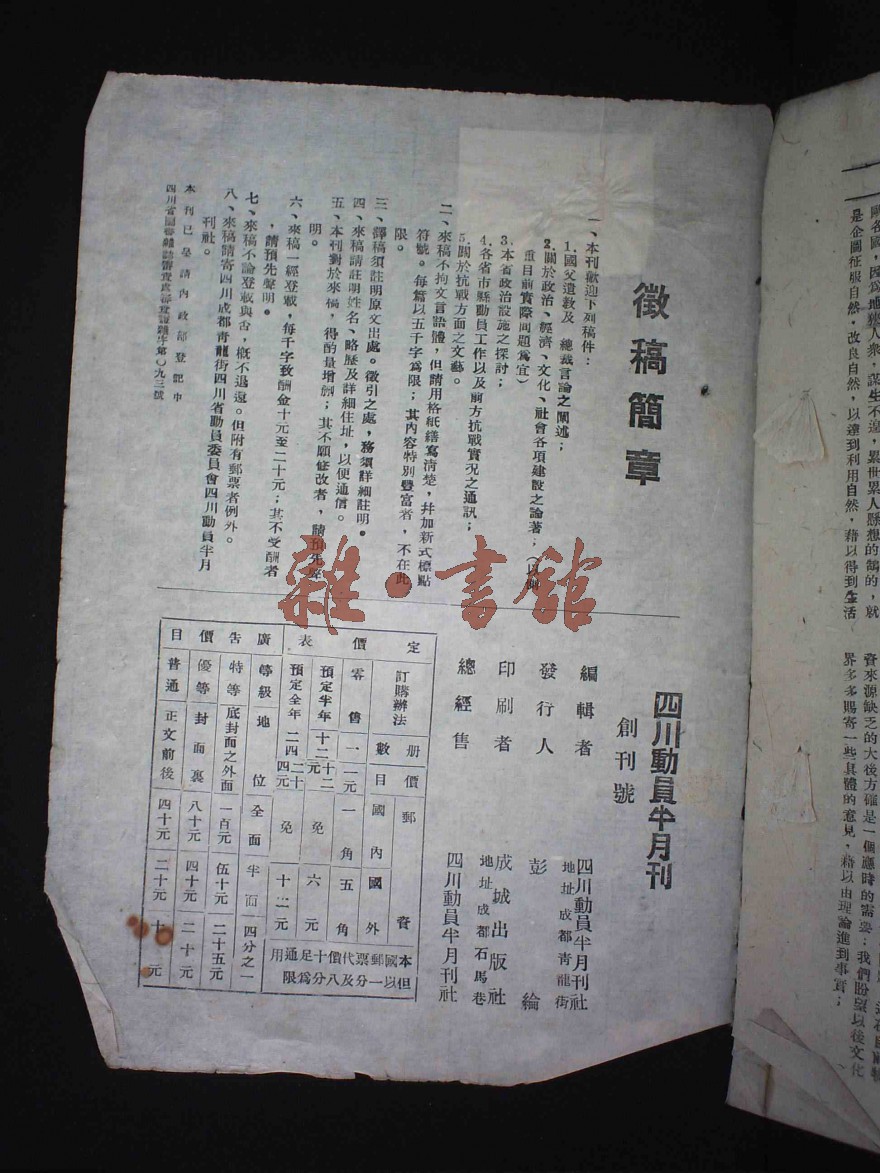 徵稿簡章
一、本刊歡迎下列稿件：
1.國父遺敎及 總裁言論之闡述；
2.關於政治、經濟、文化、社會各項建設之論著；（以側
重目前實際問題爲宜）
3.本省政治設施之探討；
4.各省市縣動員工作以及前方抗戰實況之通訊；
5.關於抗戰方面之文藝。
二、來稿不拘文言語體，但請用格紙繕寫清楚，幷加新式標點
符號。每篇以五千字爲限；其內容特別豐富者，不在此
限。
三、譯稿須註明原文出處。徵引之處，務須詳細註明。
四、來稿請註明姓名、略歷及詳細住址，以便通信。
五、本刊對於來稿，得酌量增刪；其不願修改者，請預先聲
明。
六、來稿一經登載，每千字致酬金十元至二十元；其不受酬者
，請預先聲明。
七、來稿不論登載與否，槪不退還。但附有郵票者例外。
八、來稿請寄四川成都靑龍街四川省動員委員會四川動員半月
刊社。
本刊已呈請內政部登記中
四川動員半月刊
創刊號
編輯者 四川動員半月刊社
地址 成都靑龍街
發行人 彭綸
印刷者 成城出版社
地址 成都石馬巷
總經售 四川動員半月刊社
定價表
訂購辦法 冊數 價目 郵資 國內 國外
零售 一 一元 一角 五角
預定半年 十二 十二元 免 六元
預定全年 二四 二十四元 免 十二元
本國郵票代價十足通用
但以一分及八分爲限
廣告價目
等級 地位 全面 半面 四分之一
特等 底封面之外面 一百元 伍十元 二十五元
優等 封面裏 八十元 四十元 二十元
普通 正文前後 四十元 二十元 十元
雜·書館
是企圖征服自然，改良自然，以達到利用自然，藉以得到生活
資來源缺乏的大後方確是一個應時的需要；我們盼望以後文化
界多多賜寄一些具體的意見，藉以由理論進到事實；